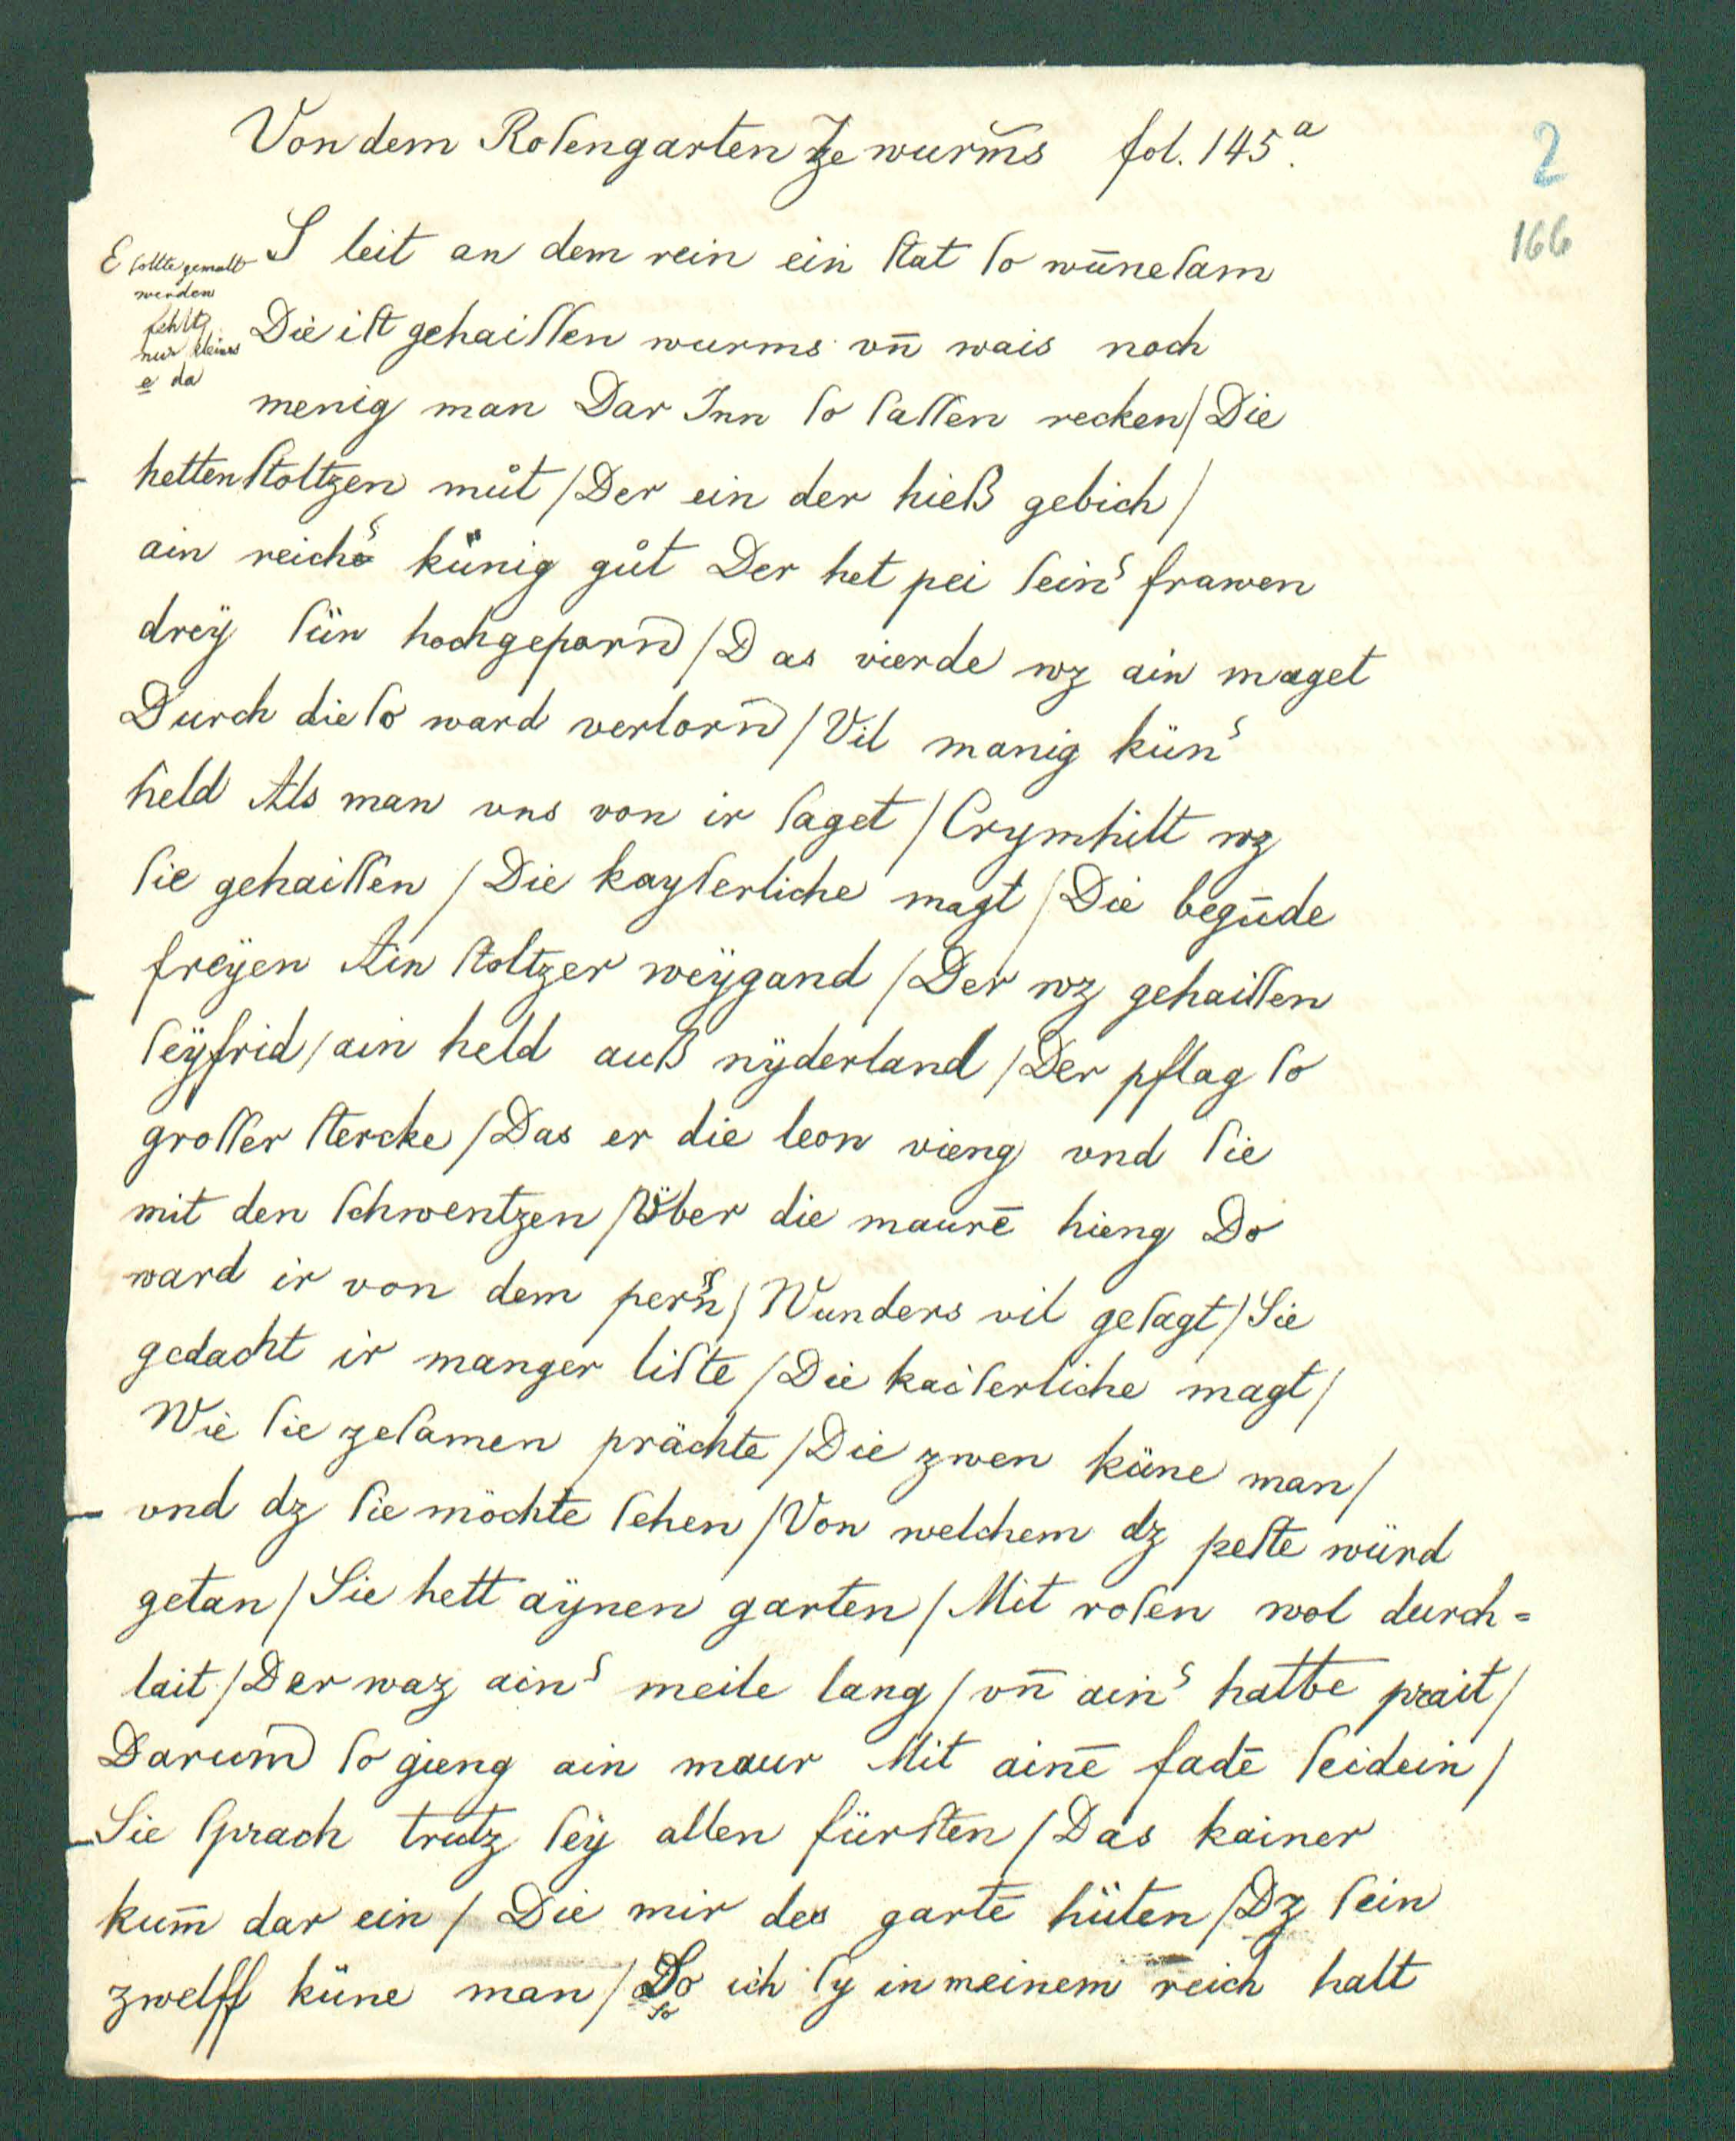 Von dem Roſengarten Ze wurm̅s fol. 145.a
2
166
E ſollte gemalt
werden
fehlt,
nur kleines
e da
S leit an dem rein ein ſtat ſo wūneſam
Die iſt gehaiſſen wurms vn̄ wais noch
menig man Dar Inn ſo ſaſſen recken / Die
hetten ſtoltzen můt / Der ein der hieß gebich /
ain reich͛ künig gůt Der het pei ſein͛ frawen
dreÿ ſün hochgeporn̄ / Das vierde wz ain maget
Durch die ſo ward verlorn̄ / Vil manig kün͛
held Als man vns von ir ſaget / Crymhilt wz
ſie gehaiſſen / Die kayſerliche magt / Die begūde
freÿen Ain ſtoltzer weÿgand / Der wz gehaiſſen
ſeÿfrid / ain held auß nÿderland / Der pflag ſo
groſſer ſtercke / Das er die leon vieng vnd ſie
mit den ſchwentzen / Vͤber die maurē hieng Do
ward ir von dem pern͛ / Wunders vil geſagt / Sie
gedacht ir manger liſte / Die kaiſerliche magt /
Wie ſie zeſamen prächte / Die zwen küne man /
vnd dz ſie möchte ſehen / Von welchem dz peſte würd
getan / Sie hett aÿnen garten / Mit roſen wol durch=
lait / Der waz ain͛ meile lang / vn̄ ain͛ halbe prait /
Darum̄ ſo gieng ain maur Mit ainē fadē ſeidein /
Sie ſprach trutz ſeÿ allen fürſten / Das kainer
kum̄ dar ein / Die mir des gartē hüten / Dz ſein
zwelff küne man / So ich ſy in meinem reich halt
So